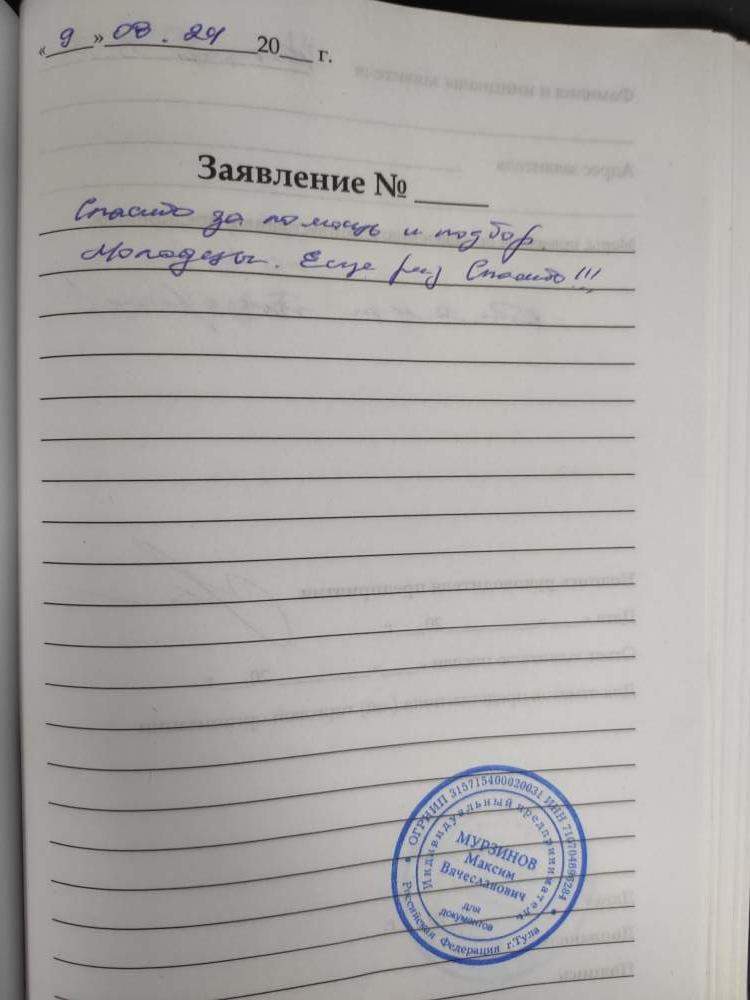 «9» 08.24 20___ г.
Заявление № ____
Спасибо за помощь и подбор
Молодцы. Еще раз Спасибо!!!
ОГРНИП 315715400020031 ИНН
Индивидуальный предприниматель
МУРЗИНОВ
Максим
Вячеславович
для
документов
Российская Федерация г.Тула